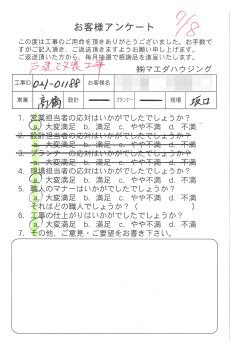 7/8
お客様アンケート
この度は工事のご用命を頂きありがとうございました。お手数で
すがご記入頂き、ご返送頂きますようお願い申し上げます。
ご返送頂いた方から、毎月抽選で感謝品を進呈いたします。
㈱マエダハウジング
工事ID 021-01188 お客様名
営業 高橋 設計 プランナー 現場 坂口
1. 営業担当者の応対はいかがでしたでしょうか?
a. 大変満足 b. 満足 c. やや不満 d. 不満
2. 設計担当者の応対はいかがでしたでしょうか?
a. 大変満足 b. 満足 c. やや不満 d. 不満
3.
a. 大変満足 b. 満足 c. やや不満 d. 不満
4. 現場担当者の応対はいかがでしたでしょうか?
a. 大変満足 b. 満足 c. やや不満 d. 不満
5. 職人のマナーはいかがでしたでしょうか?
a. 大変満足 b. 満足 c. やや不満 d. 不満
それはどの職人でしょうか?( )
6. 工事の仕上がりはいかがでしたでしょうか?
a. 大変満足 b. 満足 c. やや不満 d. 不満
7. その他、ご意見・ご要望をお書き下さい。